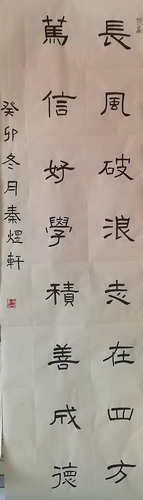 長風破浪志在四方
篤信好學積善成德
癸卯冬月秦煜軒